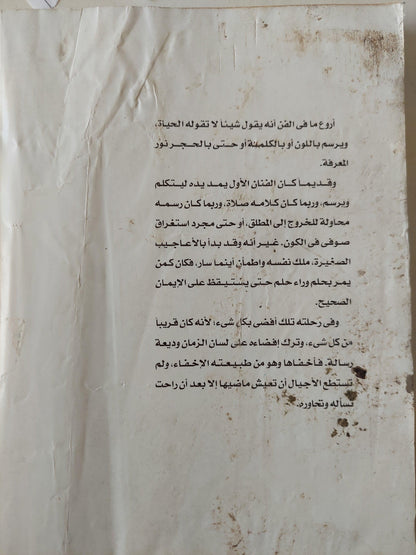 أروع ما فى الفن أنه يقول شيئاً لا تقوله الحياة،
ويرسم باللون أو بالكلمة أو حتى بالحجر نور
المعرفة.
وقديما كان الفنان الأول يمد يده ليتكلم
ويرسم، وربما كان كلامه صلاة، وربما كان رسمه
محاولة للخروج إلى المطلق، أو حتى مجرد استغراق
صوفى فى الكون. غير أنه وقد بدأ بالأعاجيب
الصغيرة، ملك نفسه واطمأن أينما سار، فكان كمن
يمر بحلم وراء حلم حتى يستيقظ على الإيمان
الصحيح.
وفى رحلته تلك أفضى بكل شىء؛ لأنه كان قريباً
من كل شىء، وترك إفضاءه على لسان الزمان وديعة
رسالة. فأخفاها وهو من طبيعته الإخفاء، ولم
تستطع الأجيال أن تعيش ماضيها إلا بعد أن راحت
تسأله وتحاوره.